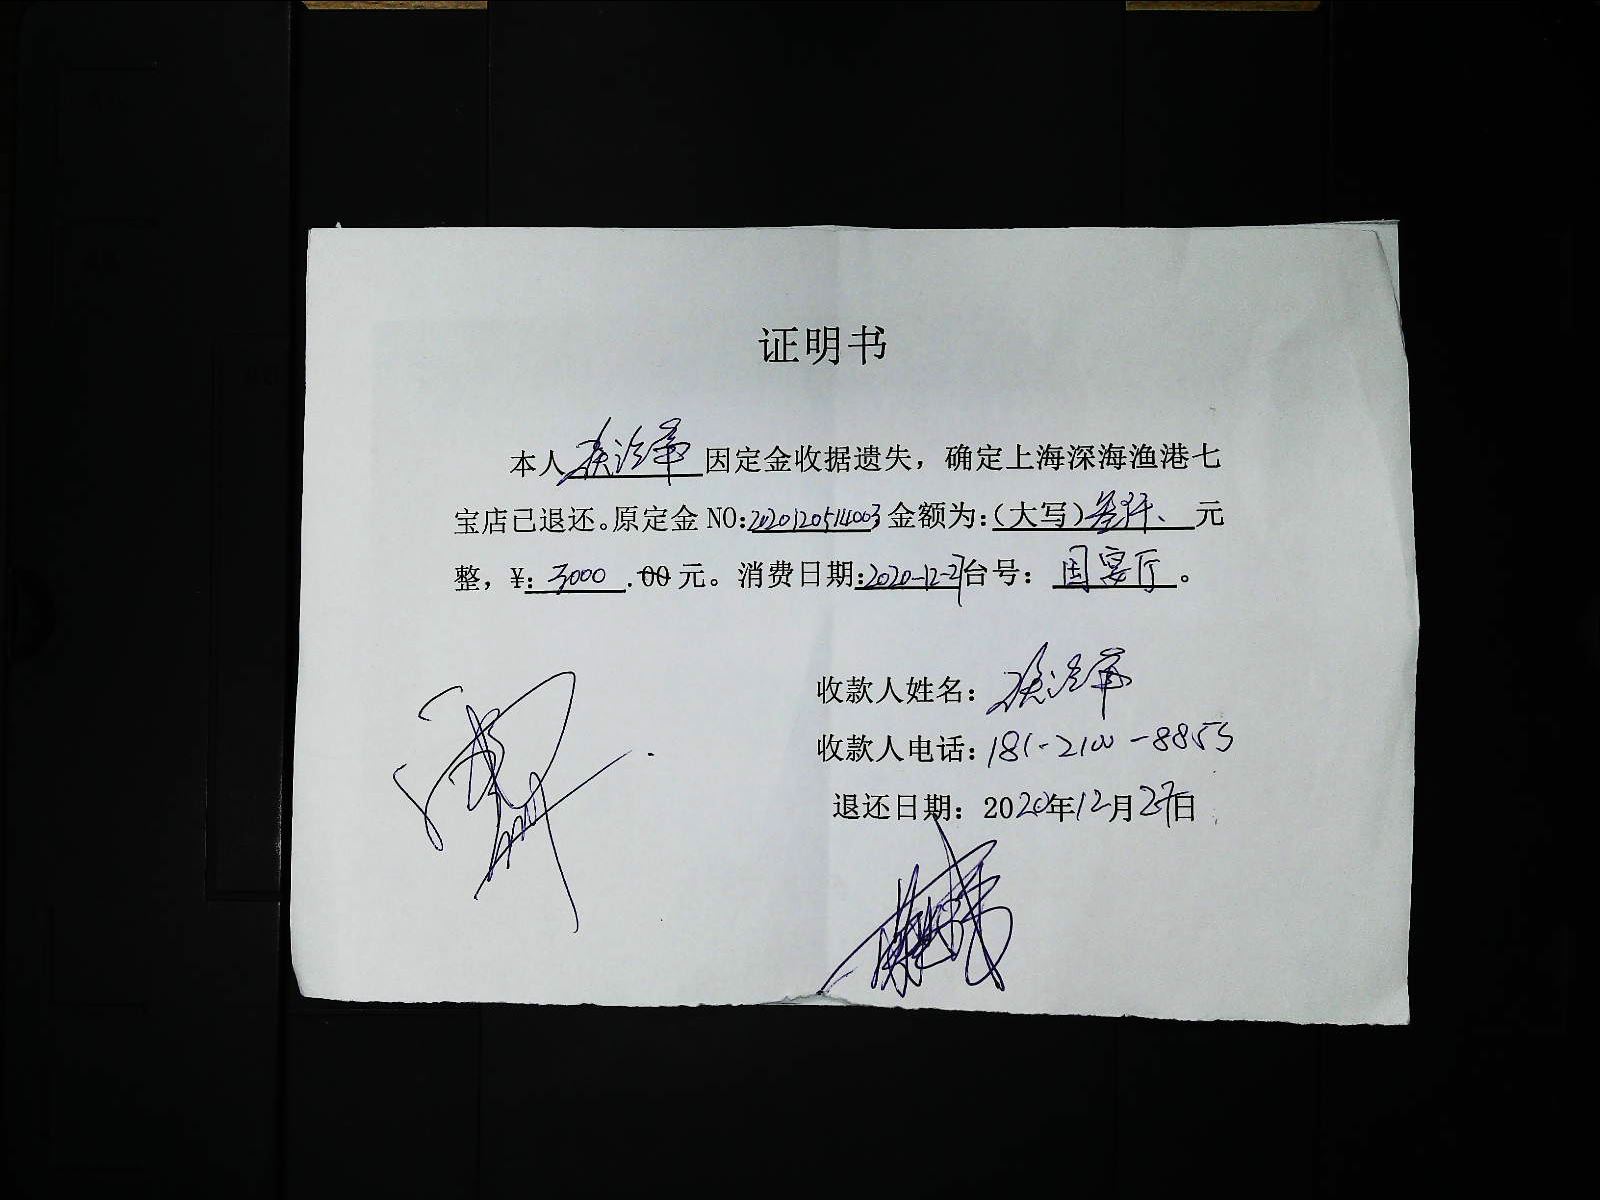 证明书
本人 因定金收据遗失，确定上海深海渔港七
宝店已退还。原定金 NO:2020120514003 金额为:(大写)叁仟、元
整，¥: 3000 .00 元。消费日期:2020-12-27台号： 国宴厅 。
收款人姓名：
收款人电话：181-2100-8855
退还日期：2020年12月27日